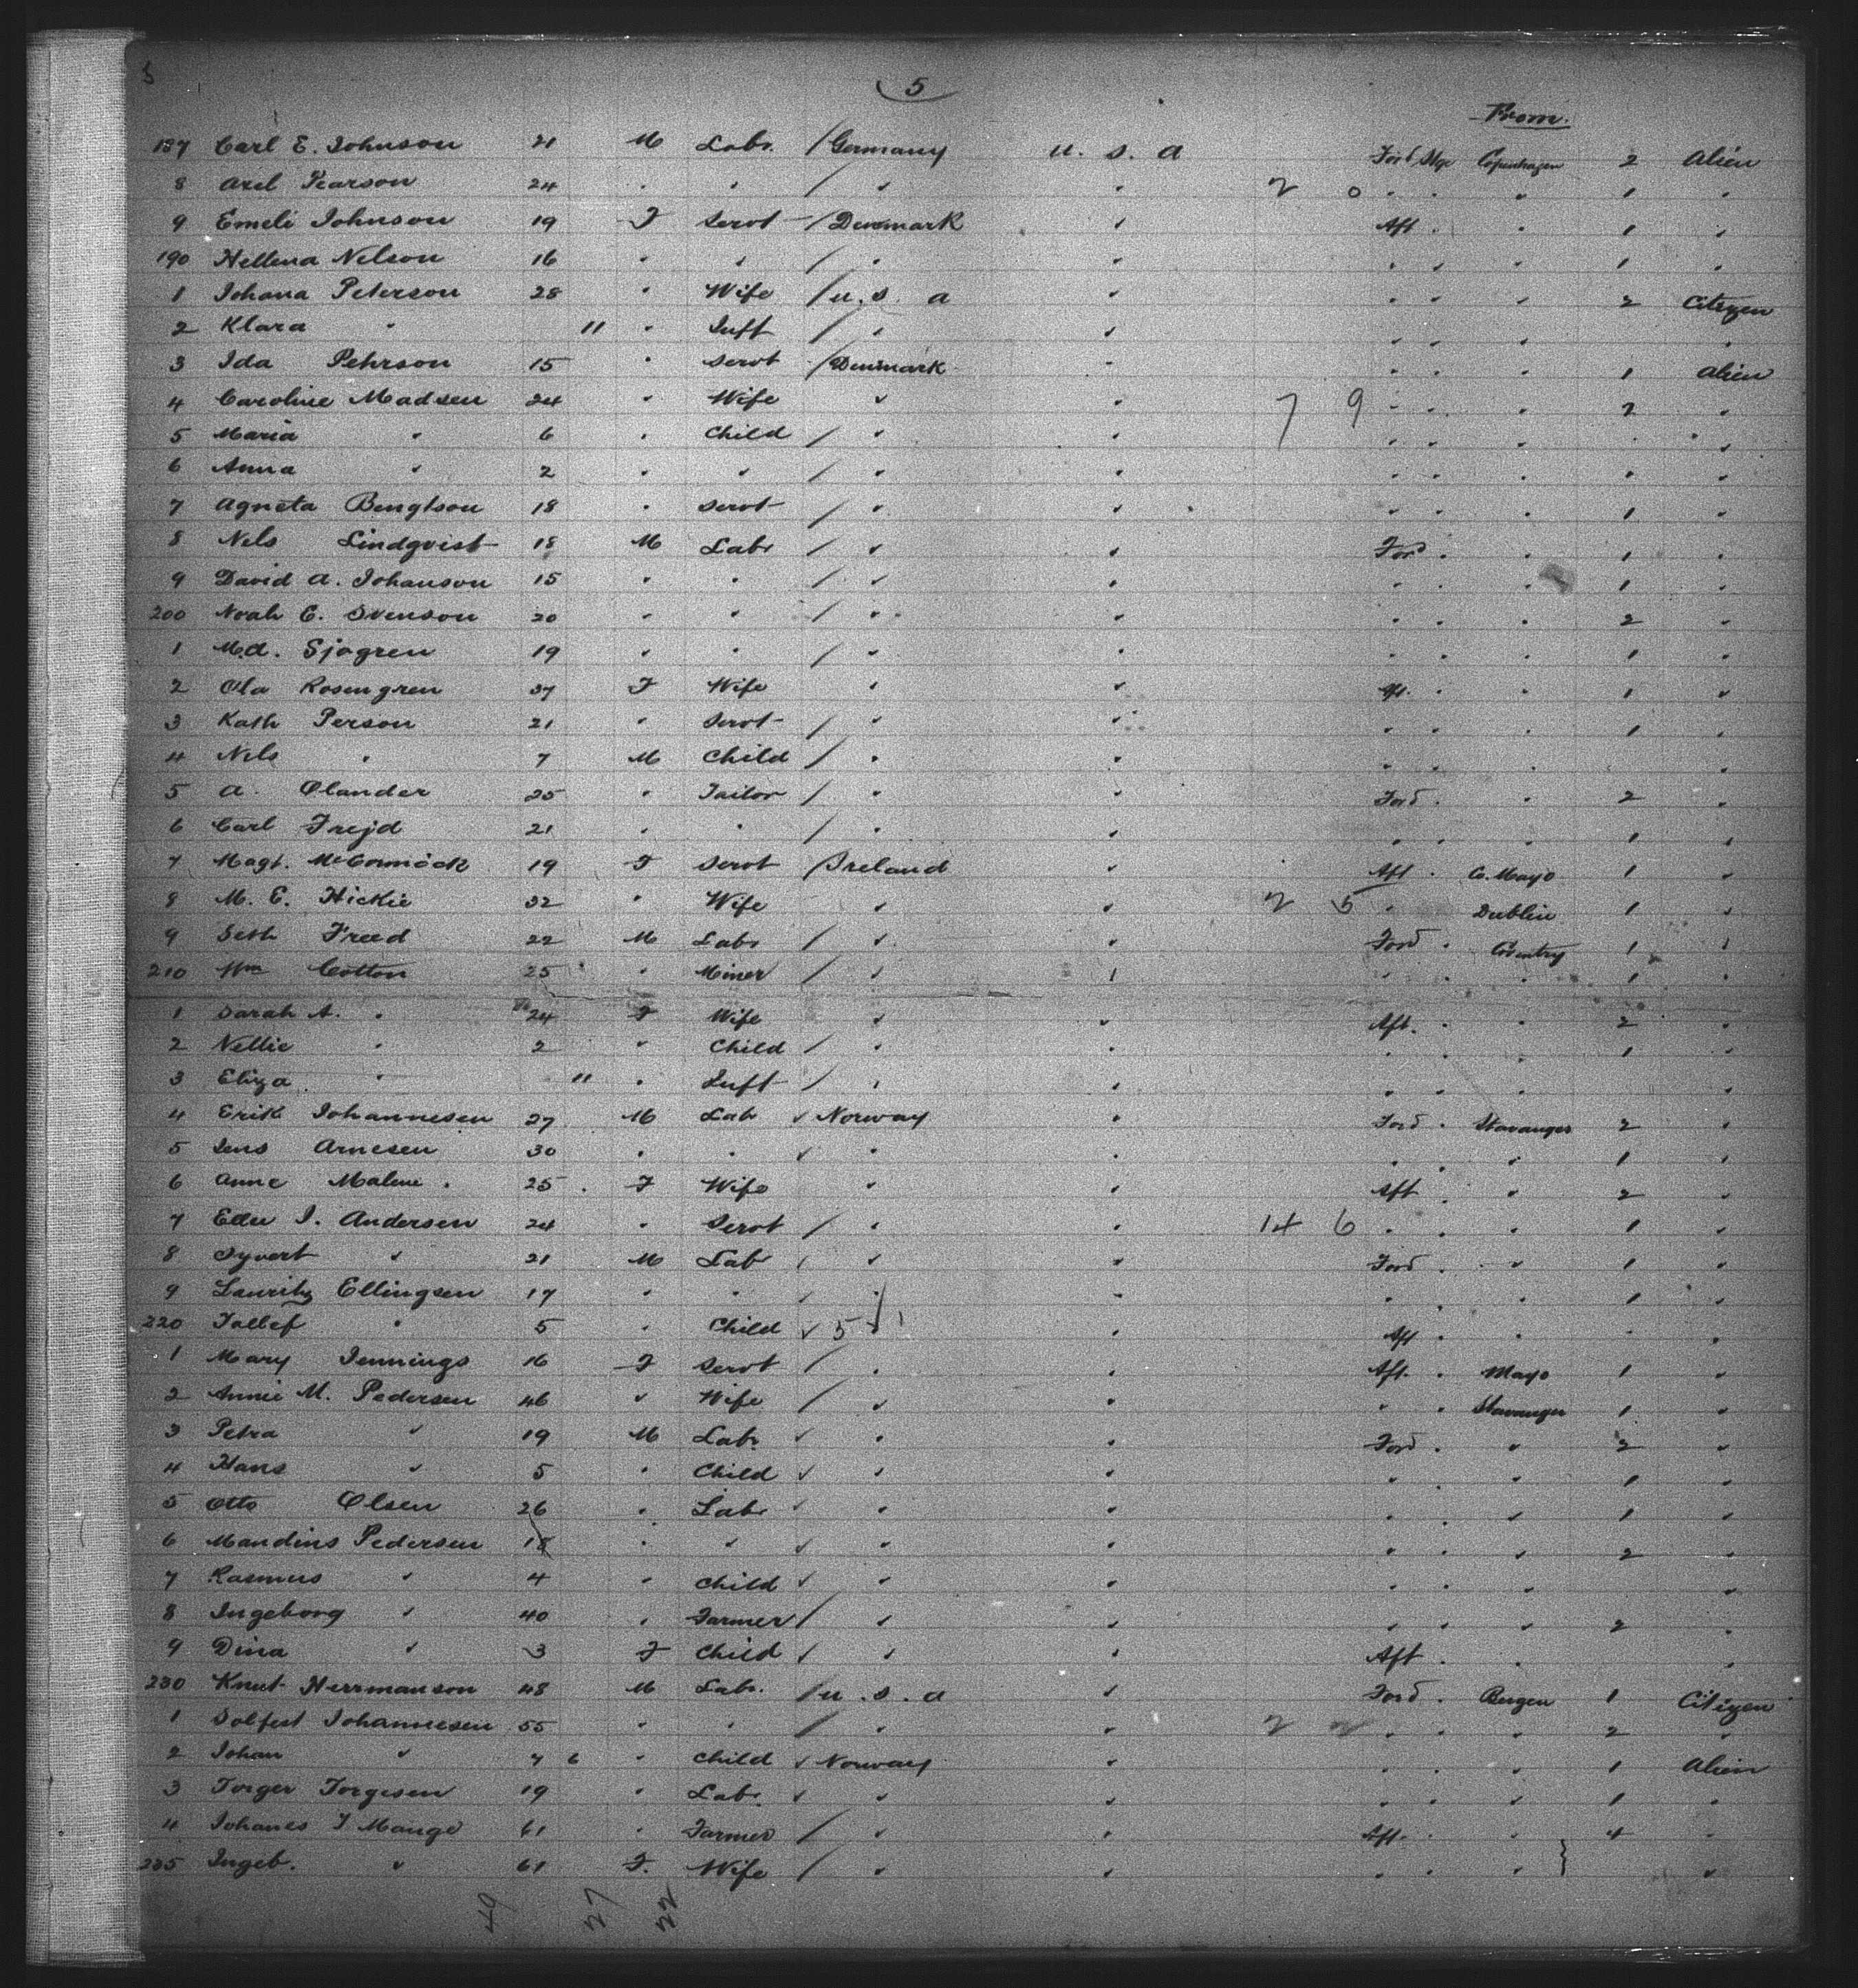 5
5
From.
187 Carl E. Johnson 21 M Labr. / Germany U. S. A Ford Stge Copenhagen 2 Alien
8 Axel Pearson 24 " " / " " 2 0 " " " 1 "
9 Emeli Johnson 19 F Servt / Denmark " Aft " " 1 "
190 Hellena Nelson 16 " " / " " " " " 1 "
1 Johana Peterson 28 " Wife / U. S. A " " " " 2 Citizen
2 Klara " 11 " Inft / " " " " " "
3 Ida Pehrson 15 " Servt / Denmark " " " " 1 Alien
4 Caroline Madsen 24 " Wife " " 7 9 " " " 2 "
5 Maria " 6 " Child / " " " " " " "
6 Anna " 2 " " / " " " " " " "
7 Agneta Bengtson 18 " Servt / " " " " " 1 "
8 Nels Lindqvist 18 M Labr / " " Ford " " 1 "
9 David A. Johanson 15 " " / " " " " " 1 "
200 Noah C. Svenson 20 " " / " " " " " 2 "
1 M.A. Sjogren 19 " " / " " " " " 1 "
2 Ola Rosengren 37 F Wife " " Aft. " " 1 "
3 Kath Person 21 " Servt / " " " " " 1 "
4 Nels " 7 M Child / " " " " " "
5 A. Olander 25 " Tailor / " " Ford " " 2 "
6 Carl Frejd 21 " " / " " " " " 1 "
7 Magt. McCormick 19 F Servt / Ireland " Aft " Co. Mayo 1 "
8 M. E. Hickie 32 " Wife " " 2 5 " Dublin 1 "
9 Seth Freed 22 M Labr / " " Ford " Coventry 1 "
210 Wm Cotton 25 " Miner / " " " " " 1 "
1 Sarah A. " 24 F Wife " " Aft. " " 2 "
2 Nellie " 2 " Child / " " " " " 1 "
3 Eliza " 11 " Inft / " " " " "
4 Erik Johannesen 27 M Lab ✓ Norway " Ford " Stavanger 2 "
5 Jens Arnesen 30 " " ✓ " " " " " 1 "
6 Anne Malene " 25 F Wife " " Aft " " 2 "
7 Ellen J. Andersen 24 " Servt / " " 14 6 " " " 1 "
8 Syvert " 21 M Lab / " " Ford " " 1 "
9 Lauritz Ellingsen 17 " " ✓ " " " " " 1 "
220 Tallef " 5 " Child ✓ 5 " Aft " " " "
1 Mary Jennings 16 F Servt / " " Aft. " Mayo 1 "
2 Annie M. Pedersen 46 " Wife / " " " " Stavanger 1 "
3 Petra " 19 M Labr ✓ " " Ford " " 2 "
4 Hans " 5 " Child ✓ " " " " " 1 "
5 Otto Olsen 26 " Labr ✓ " " " " " 1 "
6 Mandius Pedersen 18 " " ✓ " " " " " 2 "
7 Rasmus " 4 " Child ✓ " " " " " "
8 Ingeborg " 40 " Farmer / " " " " " 2 "
9 Dina " 3 F Child ✓ " " Aft " " "
230 Knut Herrmanson 48 M Labr. / U. S. A " Ford " Bergen 1 Citizen
1 Solfest Johannesen 55 " " / " " 2 " " " 2 "
2 Johan " 7 6 " Child ✓ Norway " " " " 1 Alien
3 Torger Torgisen 19 " Labr. ✓ " " " " " 1 "
4 Johanes J Mange 61 " Farmer / " " Aft. " " 4 "
235 Ingeb. " 61 F. Wife / " " " " " "
49 27 22